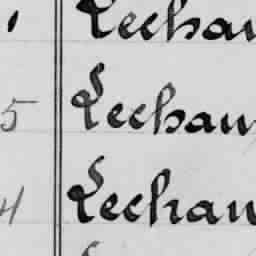 Lechau
5 Lechau
4 Lechau